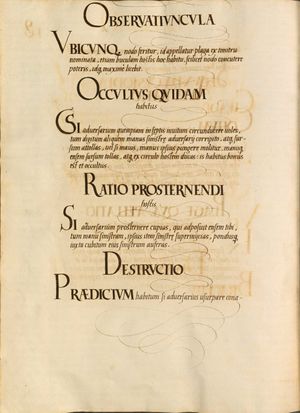 OBSERVATIVNCVLA
VBICVNQ, nodo feritur, id appellatur plaga ex
nominata, etiam buculam hostis hoc habitu, scilicet nodo concutere
poteris, idq maxime licebit.
OCCVLTVS QVIDAM
habitus
SI adversarium quempiam in septis
tum dextram aliquem manus sinistre adversarij corripito, atq sur
sum attollas, vel si manus, manus ipsius pungere
ensem sursum tollas, atq ex circulo hostem ducas: is habitus bonus
est et occultus.
RATIO PROSTERNENDI
hostis
SI adversarium prosternere cupias, qui adposuit ensem tibi,
tum manu sinistram, ipsius item sinistre superinjicias, pondusq
iuxta cubitum eius sinistrum auferas.
DESTRVCTIO
PRÆDICTVM habitum si adversarius usurpare cona-